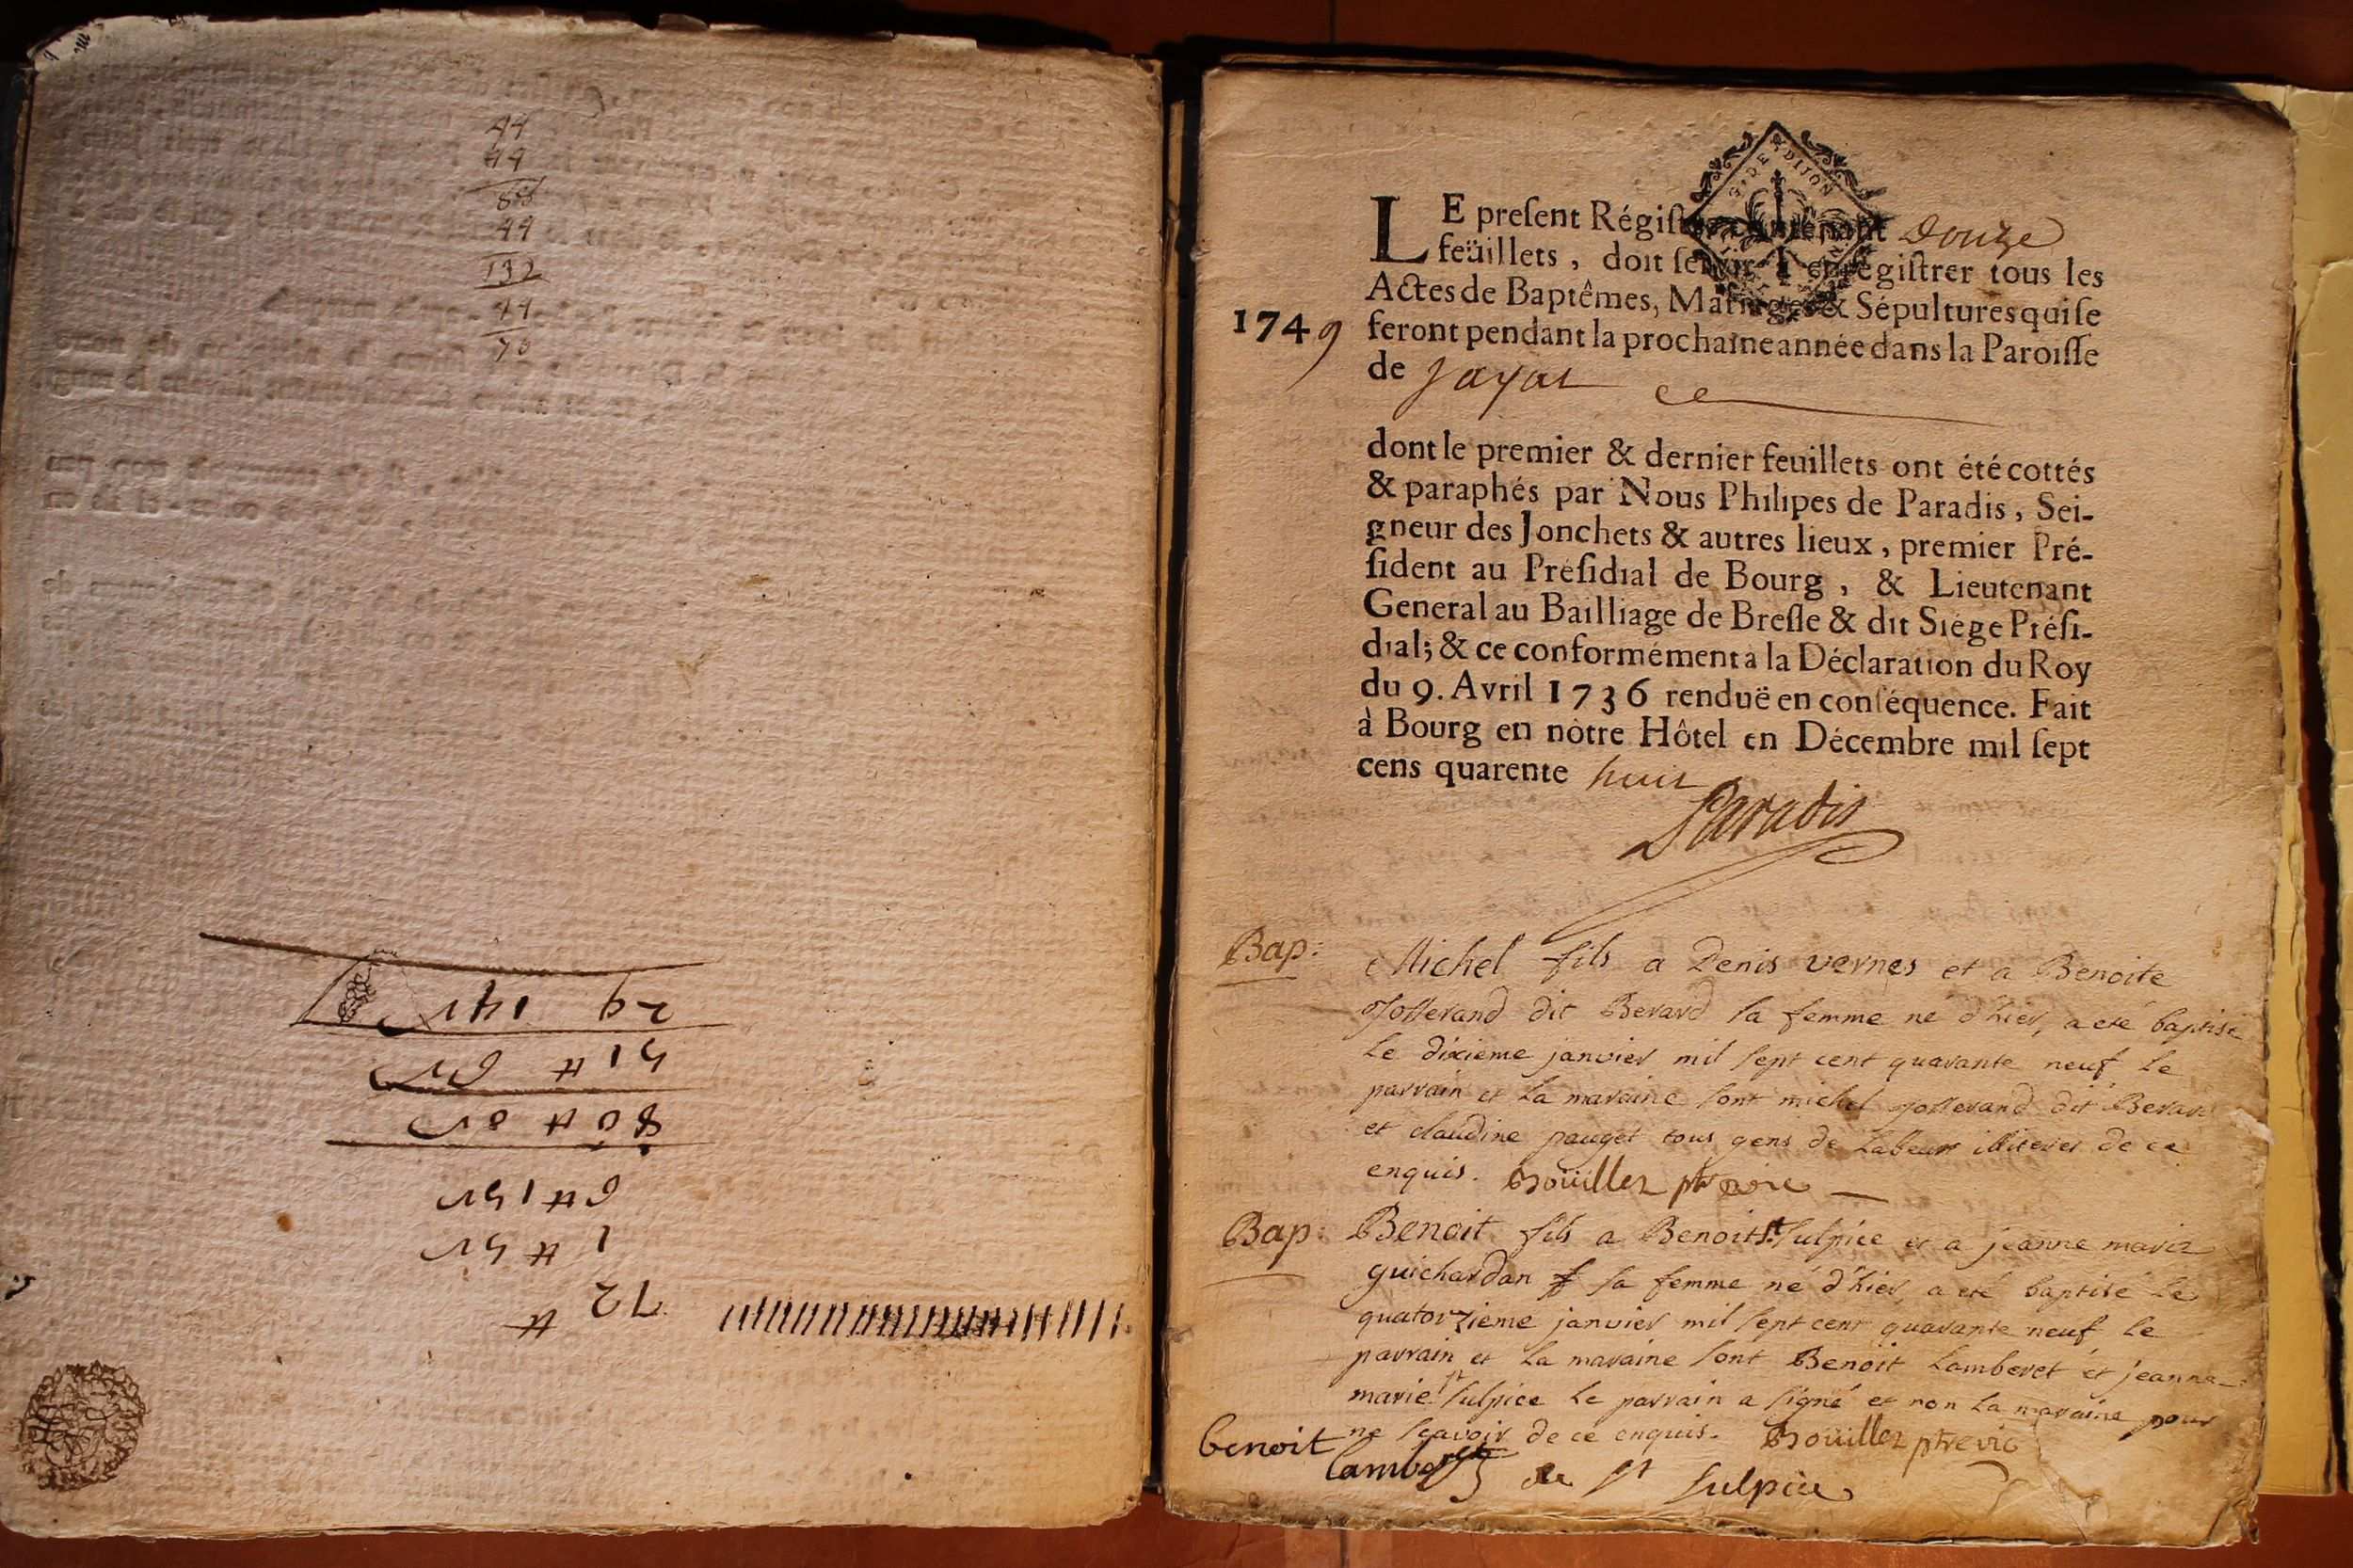 44
44
88
44
132
44
72 #
1 # 5 s
6 # 15 s
80 # 0 s
51 # 6 s
29 14 s
LE preſent Régiſtre contenant Douze
feüillets, doit ſervir à enregiſtrer tous les
Actes de Baptêmes, Mariages & Sépultures qui ſe
1749 feront pendant la prochaine année dans la Paroiſſe
de Jayat
dont le premier & dernier feuillets ont été cottés
& paraphés par Nous Philipes de Paradis, Sei-
gneur des Jonchets & autres lieux, premier Pré-
ſident au Préſidial de Bourg, & Lieutenant
General au Bailliage de Breſſe & dit Siége Préſi-
dial; & ce conformément à la Déclaration du Roy
du 9. Avril 1736 renduë en conſéquence. Fait
à Bourg en nôtre Hôtel en Décembre mil ſept
cens quarente huit
Paradis
Bap: Michel fils a Denis vernes et a Benoite
Jofferand dit Berard sa femme né d'hier, a eté baptisé
le dixieme janvier mil sept cent quarante neuf le
parrain et la maraine sont michel jofferand dit Berard
et claudine pauget tous gens de labeur illiteres de ce
enquis. Bouillez ptre vic
Bap: Benoit fils a Benoit St Sulpice et a jeanne marie
guichardan sa femme né d'hier, a eté baptisé le
quatorzieme janvier mil sept cent quarante neuf le
parrain et la maraine sont Benoit Lamberet et jeanne
marie St Sulpice le parrain a signé et non la maraine pour
ne sçavoir de ce enquis. Bouillez ptre vic
benoit
lamberet de St Sulpice